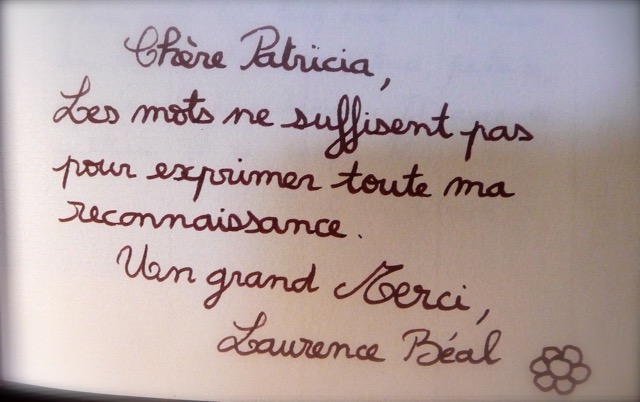 Chère Patricia,
Les mots ne suffisent pas
pour exprimer toute ma
reconnaissance.
Un grand Merci,
Laurence Béal